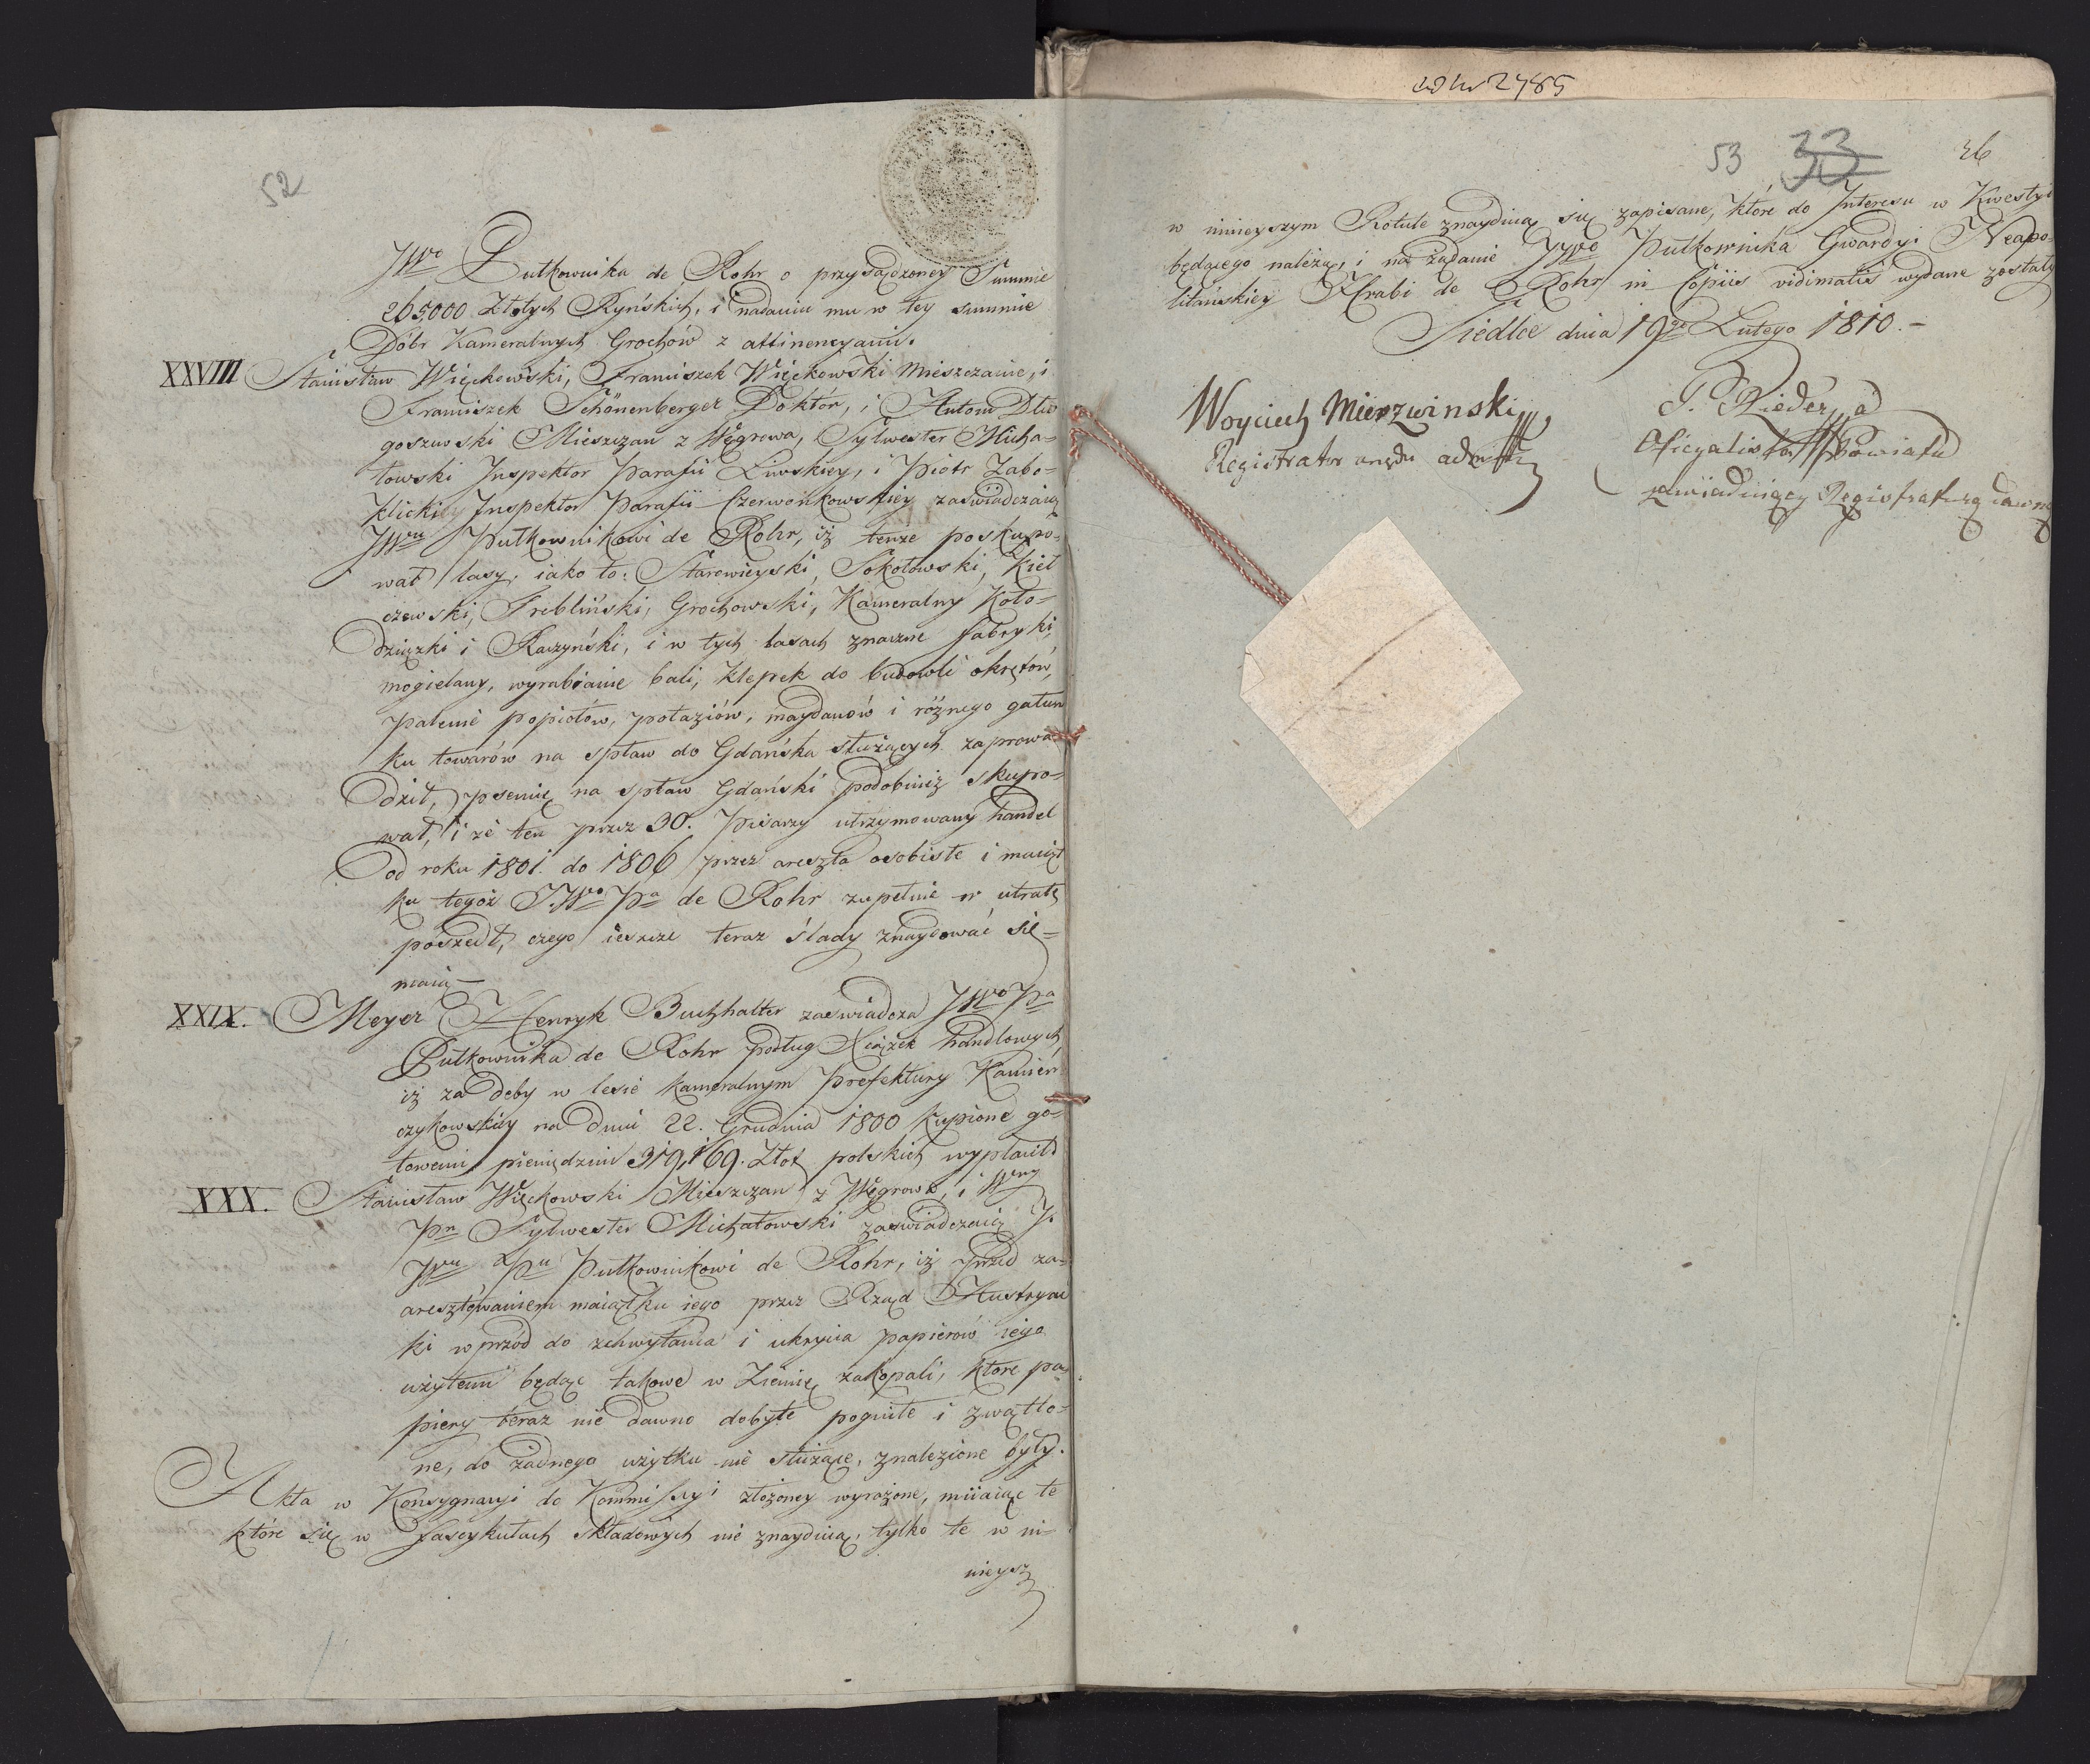 52
JWo Pułkownika de Rohr o przysądzoney Summie
265000 Złotych Ryńskich, i nadaniu mu w tey summie
Dóbr Kameralnych Grochów z attinencyami.
XXVIII Stanisław Więckowski, Franciszek Więckowski Mieszczanie, i
Franciszek Schönenberger Doktór, i Antoni Dłu
goszewski Mieszczan z Węgrowa, Sylwester Micha=
łowski Inspektor Parafii Liwskiey, i Piotr Zabo=
klicki Inspektor Parafii Czerwonkowskiey zaświadczaią
JWu Pułkownikowi de Rohr, iż tenże poskupo=
wał lasy, iako to: Starowieyski, Sokołowski, Kieł
czewski, Trebliński, Grochowski, Kameralny Koło=
dziązki i Raczyński, i w tych lasach znaczne fabryki,
mogielany, wyrabianie bali, klepek do budowli okrętów,
palenie popiołów, potaziów, maydanów i różnego gatun
ku towarów na spław do Gdańska służących zaprowa
dził, psenicę na spław Gdański podobnież skupo=
wał, i że ten przez 30. Pisarzy utrzymowany handel
od roku 1801. do 1806 przez areszta osobiste i maiąt
ku tegoż J.Wo Pa de Rohr zupełnie w utratę
poszedł, czego ieszcze teraz ślady znaydować się=
maią—
XXIX. Meyer Henryk Buchhalter zaświadcza JWo Pa
Pułkownika de Rohr podług Xiążek handlowych
iż za dęby w lesie kameralnym Prefektury Kamień
czykowskiey na dniu 22. Grudnia 1800 kupione go=
towemi pieniędzmi 319,169. Złot polskich wypłacił
XXX. Stanisław Więckowski Mieszczan z Węgrowa, i Wny
Pn Sylwester Michałowski zaświadczaią J.
JWu Pu Pułkownikowi de Rohr, iż przed za=
aresztowaniem maiątku iego przez Rząd Austryac
ki wprzód do zchwytania i ukrycia papierów iego
użytemi będąc takowe w Ziemię zakopali, które pa=
piery teraz nie dawno dobyte pogniłe i zwątlo=
ne, do żadnego użytku nie służące, znalezione były.
Akta w Konsygnacyi do Kommissyi złożoney wyrażone, miiaiąc te
które się w fascykułach składowych nie znayduią, tylko te w ni=
nieysz
53 33 26
w ninieyszym Rotule znayduią się zapisane, które do Interesu w Kwestyi
będącego należą, i na żądanie JWo Pułkownika Gwardyi Neapo=
litańskiey Hrabi de Rohr in Copiis vidimatis wydane zostały
Siedlce dnia 19go Lutego 1810.—
Woyciech Mierzwinski
Registrator urzędu
J. Rieder
Oficyalista Powiatu
zawiaduiący Registraturą dawną